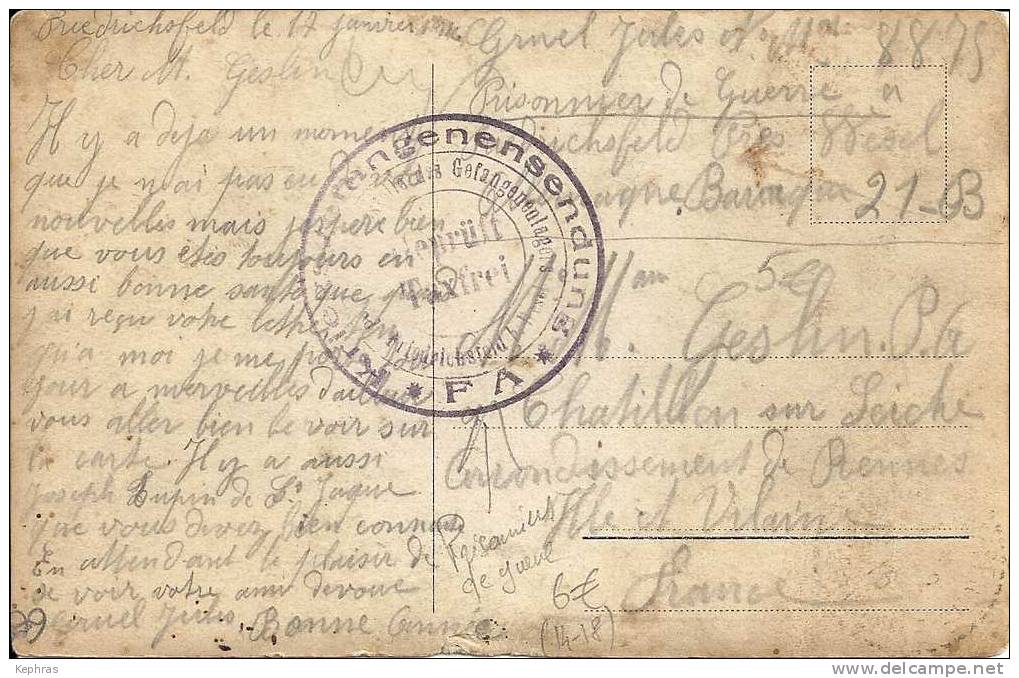 Friedrichsfeld le 17 janvier
Cher M. Geslin
Il y a déja un moment
que je n'ai pas eu
nouvelles mais j'espere bien
que vous etes toujours en
aussi bonne santé que
j'ai reçu votre lettre
moi je me porte
jour a merveilles d'ailleurs
vous aller bien le voir sur
la carte. Il y a aussi
Joseph Lupin de St Jaque
que vous devez bien connaitre
En attendant le plaisir de
se voir, votre ami devoué
Gruel Jules, Bonne Année
Gruel Jules 8875
Prisonnier de Guerre a
Friedrichsfeld Près
21-B
5e
M. Geslin. P.
Chatillon sur Seiche
arrondissement de Rennes
Ille et Vilaine
France
Kriegsgefangenensendung
* F A *
des Gefangenenlagers
Friedrichsfeld
Geprüft
Taxfrei
Prisonniers
de guerre
6€
(14-18)
Kephras
www.delcampe.net